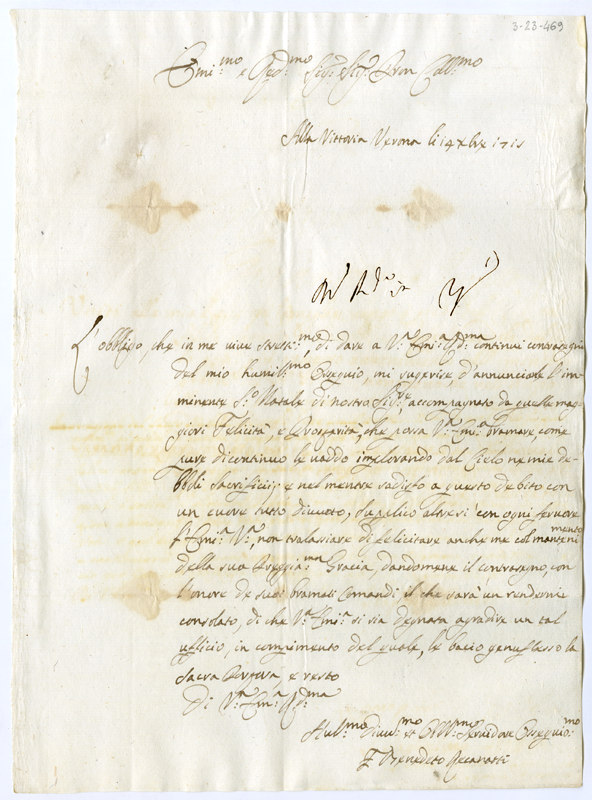 3-23-469
Emi:mo e Red:mo Sig:r Sig:r Pron Coll:mo
Alla Vittoria Verona li 14 Xbre 1715
L'obbligo, che in me vive stretti:mo, di dare a V:ra Em:a R:dma continui contrasegni
del mio humil:mo Ossequio, mi sugerisce d'annunciarle l'im-
minente S:to Natale di nostro Sig:re, accompagnato da quelle mag-
giori Felicità, e Prosperità, che possa V:ra Em:a bramare, come
pure di continuo le vaddo implorando dal Cielo ne miei de-
bboli Sacrificij; e nel mentre sadisfo a questo debito con
un cuore tutto divoto, suplico altresi con ogni fervore
l'Em:a V:ra, non tralasciare di felicitare anche me col manteni
mento
della sua Preggia:ma Gracia, dandomene il contrasegno, con
l'onore de suoi bramati Comandi il che sarà un rendermi
consolato, di che V:ra Em:a si sia degnata agradire un tal
ufficio, in compimento del quale, le bacio genuflesso la
Sacra Porpora, e resto
Di V:ra Em:a R:dma
Hul:mo Divo:mo et Obb:mo Servidore Ossequio:mo
F Benedeto